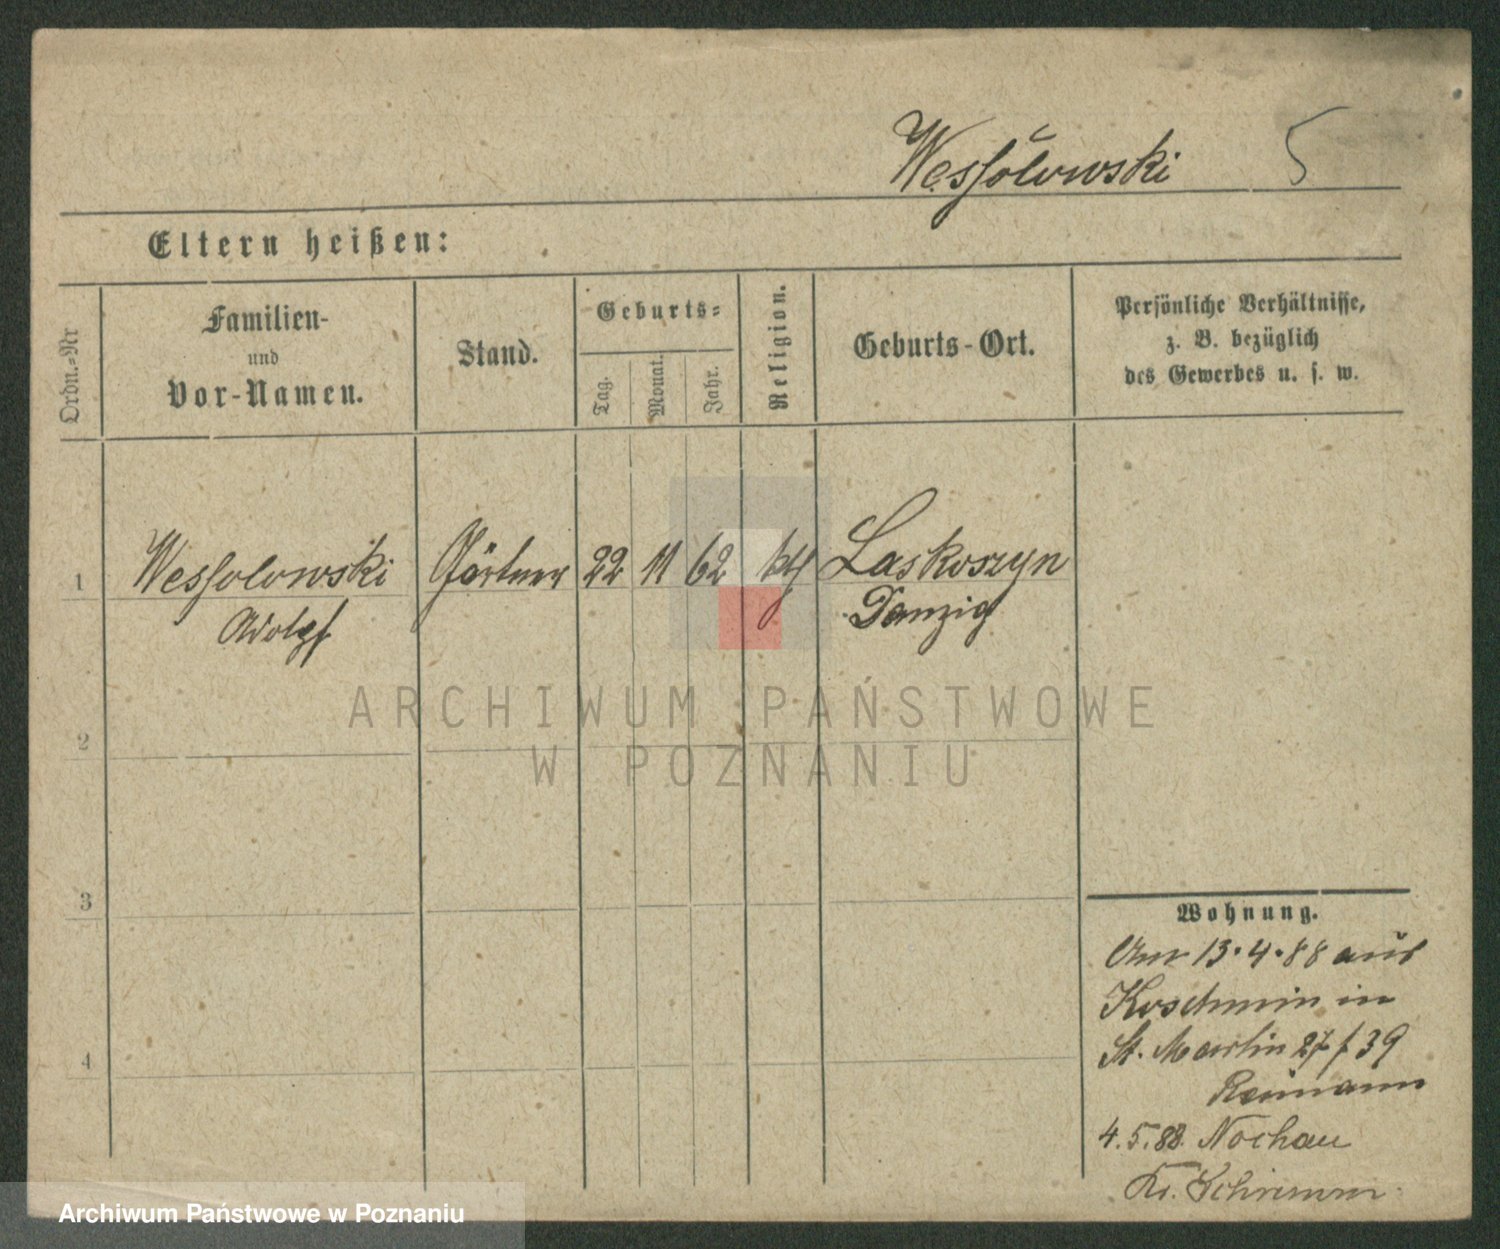 Wessolowski 5
Eltern heißen:
Ordn.-Nr
Familien-
und
Vor-Namen.
Stand.
Geburts-
Tag.
Monat.
Jahr.
Religion.
Geburts-Ort.
Persönliche Verhältnisse,
z. B. bezüglich
des Gewerbes u. s. w.
1 Wessolowski Gärtner 22 11 62 kth Laskoszyn
Adolf Danzig
2
3
4
Wohnung.
13.4.88 aus
Koschmin in
St. Martin 27/39
Reimann
4.5.88. Nochau
Kr. Schrimm
ARCHIWUM PAŃSTWOWE
W POZNANIU
Archiwum Państwowe w Poznaniu